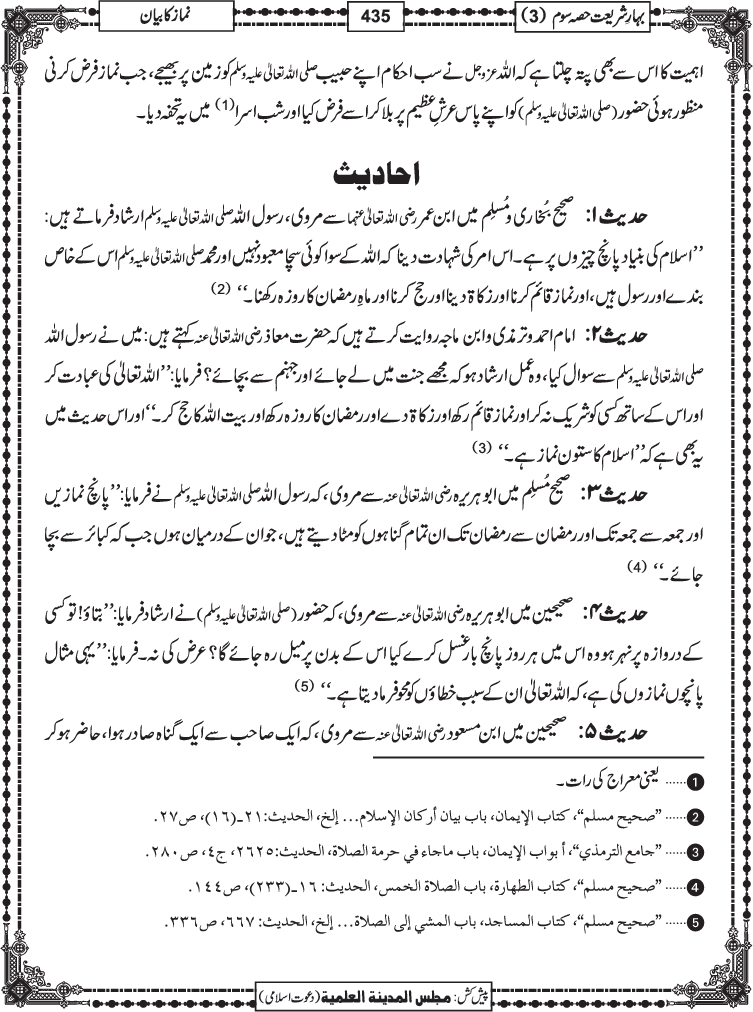 بہارِ شریعت حصہ سوم (3)
435
نماز کا بیان
اہمیت کا اس سے بھی پتہ چلتا ہے کہ اللہ عزوجل نے سب احکام اپنے حبیب صلی اللہ تعالیٰ علیہ وسلم کو زمین پر بھیجے، جب نماز فرض کرنی
منظور ہوئی حضور (صلی اللہ تعالیٰ علیہ وسلم) کو اپنے پاس عرشِ عظیم پر بلا کر اسے فرض کیا اور شب اسرا (1) میں یہ تحفہ دیا۔
احادیث
حدیث ۱: صحیح بُخاری و مُسلِم میں ابن عمر رضی اللہ تعالیٰ عنہما سے مروی، رسول اللہ صلی اللہ تعالیٰ علیہ وسلم ارشاد فرماتے ہیں:
’’اسلام کی بنیاد پانچ چیزوں پر ہے۔ اس امر کی شہادت دینا کہ اللہ کے سوا کوئی سچا معبود نہیں اور محمد صلی اللہ تعالیٰ علیہ وسلم اس کے خاص
بندے اور رسول ہیں، اور نماز قائم کرنا اور زکاۃ دینا اور حج کرنا اور ماہِ رمضان کا روزہ رکھنا۔‘‘ (2)
حدیث ۲: امام احمد و ترمذی و ابن ماجہ روایت کرتے ہیں کہ حضرت معاذ رضی اللہ تعالیٰ عنہ کہتے ہیں: میں نے رسول اللہ
صلی اللہ تعالیٰ علیہ وسلم سے سوال کیا، وہ عمل ارشاد ہو کہ مجھے جنت میں لے جائے اور جہنم سے بچائے؟ فرمایا: ’’اللہ تعالیٰ کی عبادت کر
اور اس کے ساتھ کسی کو شریک نہ کر اور نماز قائم رکھ اور زکاۃ دے اور رمضان کا روزہ رکھ اور بیت اللہ کا حج کر۔‘‘ اور اس حدیث میں
یہ بھی ہے کہ ’’اسلام کا ستون نماز ہے۔‘‘ (3)
حدیث ۳: صحیح مُسلِم میں ابوہریرہ رضی اللہ تعالیٰ عنہ سے مروی، کہ رسول اللہ صلی اللہ تعالیٰ علیہ وسلم نے فرمایا: ’’پانچ نمازیں
اور جمعہ سے جمعہ تک اور رمضان سے رمضان تک ان تمام گناہوں کو مٹا دیتے ہیں، جو ان کے درمیان ہوں جب کہ کبائر سے بچا
جائے۔‘‘ (4)
حدیث ۴: صحیحین میں ابوہریرہ رضی اللہ تعالیٰ عنہ سے مروی، کہ حضور (صلی اللہ تعالیٰ علیہ وسلم) نے ارشاد فرمایا: ’’بتاؤ! تو کسی
کے دروازہ پر نہر ہو وہ اس میں ہر روز پانچ بار غسل کرے کیا اس کے بدن پر میل رہ جائے گا؟ عرض کی نہ۔ فرمایا: ’’یہی مثال
پانچوں نمازوں کی ہے، کہ اللہ تعالیٰ ان کے سبب خطاؤں کو محو فرما دیتا ہے۔‘‘ (5)
حدیث ۵: صحیحین میں ابن مسعود رضی اللہ تعالیٰ عنہ سے مروی، کہ ایک صاحب سے ایک گناہ صادر ہوا، حاضر ہو کر
1 ...... یعنی معراج کی رات۔
2 ...... ”صحیح مسلم“، کتاب الإیمان، باب بیان أرکان الإسلام... إلخ، الحدیث: ٢١ـ(١٦)، ص٢٧.
3 ...... ”جامع الترمذي“، أبواب الإیمان، باب ماجاء في حرمة الصلاة، الحدیث: ٢٦٢٥، ج٤، ص٢٨٠.
4 ...... ”صحیح مسلم“، کتاب الطهارة، باب الصلاة الخمس، الحدیث: ١٦ـ(٢٣٣)، ص١٤٤.
5 ...... ”صحیح مسلم“، کتاب المساجد، باب المشي إلی الصلاة... إلخ، الحدیث: ٦٦٧، ص٣٣٦.
پیش کش: مجلس المدینة العلمیة (دعوتِ اسلامی)